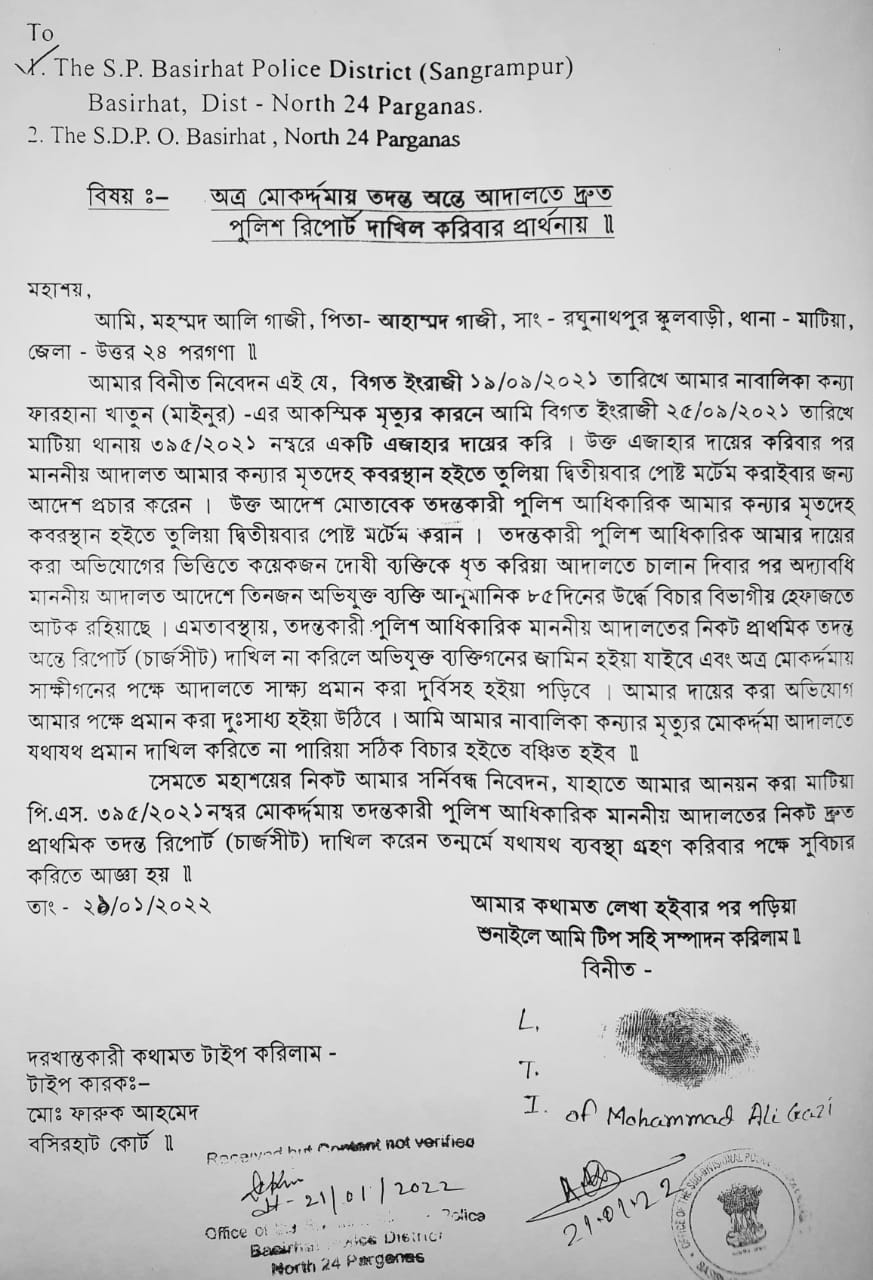 To
1. The S.P. Basirhat Police District (Sangrampur)
Basirhat, Dist - North 24 Parganas.
2. The S.D.P. O. Basirhat , North 24 Parganas
বিষয় ঃ- অত্র মোকর্দ্দমায় তদন্ত অন্তে আদালতে দ্রুত
পুলিশ রিপোর্ট দাখিল করিবার প্রার্থনায় ॥
মহাশয়,
আমি, মহম্মদ আলি গাজী, পিতা- আহাম্মদ গাজী, সাং - রঘুনাথপুর স্কুলবাড়ী, থানা - মাটিয়া,
জেলা - উত্তর ২৪ পরগণা ॥
আমার বিনীত নিবেদন এই যে, বিগত ইংরাজী ১৯/০৯/২০২১ তারিখে আমার নাবালিকা কন্যা
ফারহানা খাতুন (মাইনুর) -এর আকস্মিক মৃত্যুর কারনে আমি বিগত ইংরাজী ২৫/০৯/২০২১ তারিখে
মাটিয়া থানায় ৩৯৫/২০২১ নম্বরে একটি এজাহার দায়ের করি । উক্ত এজাহার দায়ের করিবার পর
মাননীয় আদালত আমার কন্যার মৃতদেহ কবরস্থান হইতে তুলিয়া দ্বিতীয়বার পোষ্ট মর্টেম করাইবার জন্য
আদেশ প্রচার করেন । উক্ত আদেশ মোতাবেক তদন্তকারী পুলিশ আধিকারিক আমার কন্যার মৃতদেহ
কবরস্থান হইতে তুলিয়া দ্বিতীয়বার পোষ্ট মর্টেম করান । তদন্তকারী পুলিশ আধিকারিক আমার দায়ের
করা অভিযোগের ভিত্তিতে কয়েকজন দোষী ব্যক্তিকে ধৃত করিয়া আদালতে চালান দিবার পর অদ্যাবধি
মাননীয় আদালত আদেশে তিনজন অভিযুক্ত ব্যক্তি আনুমানিক ৮৫ দিনের উর্দ্ধে বিচার বিভাগীয় হেফাজতে
আটক রহিয়াছে । এমতাবস্থায়, তদন্তকারী পুলিশ আধিকারিক মাননীয় আদালতের নিকট প্রাথমিক তদন্ত
অন্তে রিপোর্ট (চার্জসীট) দাখিল না করিলে অভিযুক্ত ব্যক্তিগনের জামিন হইয়া যাইবে এবং অত্র মোকর্দ্দমায়
সাক্ষীগনের পক্ষে আদালতে সাক্ষ্য প্রমান করা দুর্বিসহ হইয়া পড়িবে । আমার দায়ের করা অভিযোগ
আমার পক্ষে প্রমান করা দুঃসাধ্য হইয়া উঠিবে । আমি আমার নাবালিকা কন্যার মৃত্যুর মোকর্দ্দমা আদালতে
যথাযথ প্রমান দাখিল করিতে না পারিয়া সঠিক বিচার হইতে বঞ্চিত হইব ॥
সেমতে মহাশয়ের নিকট আমার সর্নিবন্ধ নিবেদন, যাহাতে আমার আনয়ন করা মাটিয়া
পি.এস. ৩৯৫/২০২১ নম্বর মোকর্দ্দমায় তদন্তকারী পুলিশ আধিকারিক মাননীয় আদালতের নিকট দ্রুত
প্রাথমিক তদন্ত রিপোর্ট (চার্জসীট) দাখিল করেন তন্মর্মে যথাযথ ব্যবস্থা গ্রহণ করিবার পক্ষে সুবিচার
করিতে আজ্ঞা হয় ॥
তাং - ২১/০১/২০২২
আমার কথামত লেখা হইবার পর পড়িয়া
শুনাইলে আমি টিপ সহি সম্পাদন করিলাম ॥
বিনীত -
L.
T.
I. of Mohammad Ali Gazi
দরখাস্তকারী কথামত টাইপ করিলাম -
টাইপ কারকঃ-
মোঃ ফারুক আহমেদ
বসিরহাট কোর্ট ॥
Received but Content not verified
21/01/2022
Office of Police
Basirhat Police District
North 24 Parganas
21.01.22
OFFICE OF THE SUB-DIVISIONAL